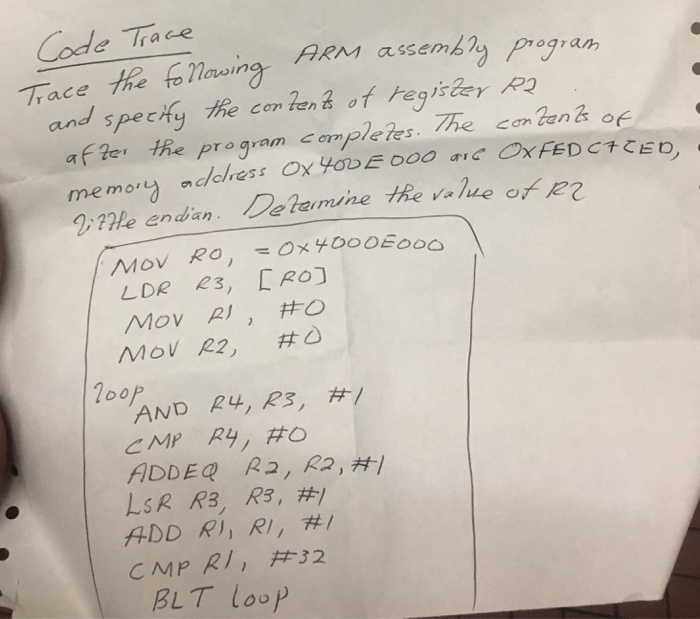 Code Trace
Trace the following ARM assembly program
and specify the contents of register R2
after the program completes. The contents of
memory address 0x400E000 are 0xFEDC7CED,
little endian. Determine the value of R2
MOV R0, =0x4000E000
LDR R3, [R0]
MOV R1, #0
MOV R2, #0
loop
AND R4, R3, #1
CMP R4, #0
ADDEQ R2, R2, #1
LSR R3, R3, #1
ADD R1, R1, #1
CMP R1, #32
BLT loop